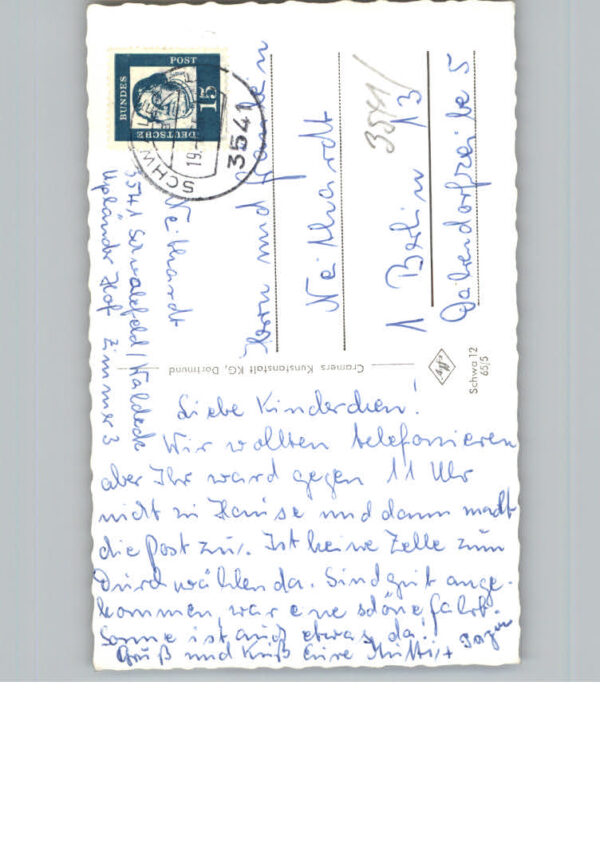 DEUTSCHE
BUNDES
POST
15
SCHW
19.
3541
Neithardt
3541 Schwalefeld/Waldeck
Upländer Hof Zimmer 3
Herrn und Frauen
Neithardt
1 Berlin 13
3541/
5
Cramers Kunstanstalt KG, Dortmund
Schwa 12
65/5
Liebe Kinderchen!
Wir wollten telefonieren
aber Ihr ward gegen 11 Uhr
nicht zu Hause und dann macht
die Post zu. Ist keine Zelle zum
Durchwählen da. Sind gut ange-
kommen, war eine schöne Fahrt.
Sonne ist auch etwas da!!
Gruß und Kuß Eure Mutti +